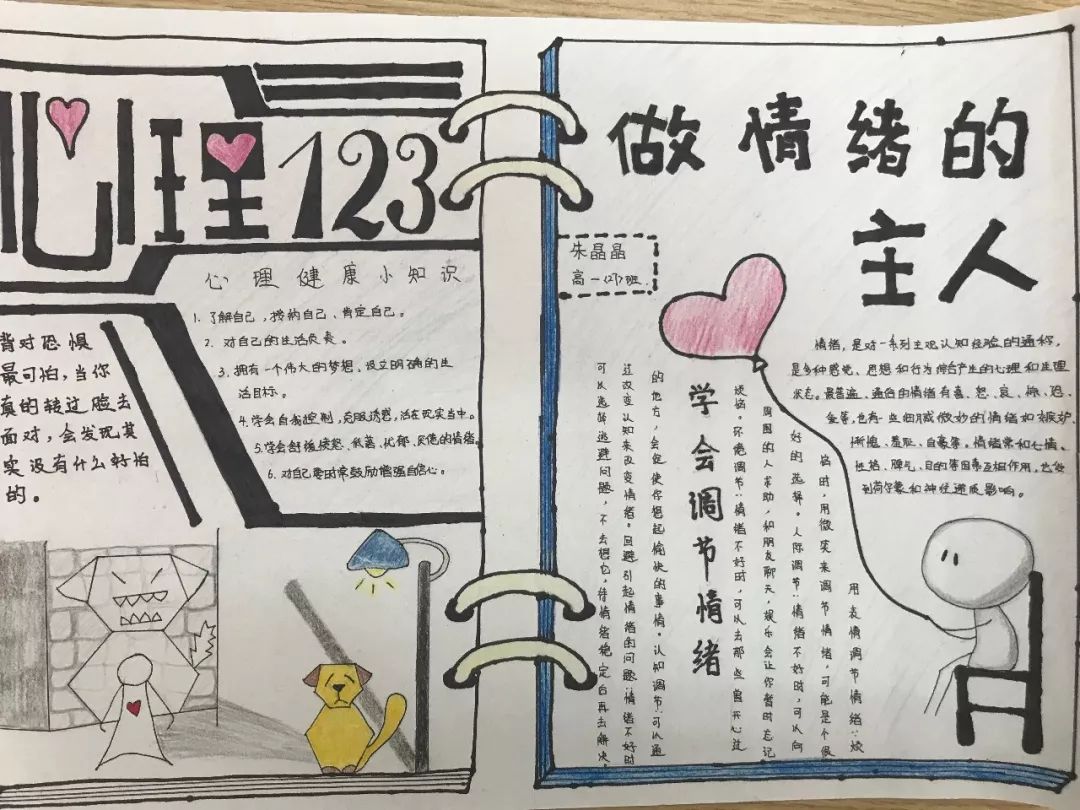 心理123
心理健康小知识
1. 了解自己，接纳自己、肯定自己。
2. 对自己的生活负责。
3. 拥有一个伟大的梦想、设立明确的生
活目标。
4. 学会自我控制，克服诱惑，活在现实当中。
5. 学会舒缓愤怒、执着、忧郁、灰色的情绪。
6. 对自己要时常鼓励增强自信心。
背对恐惧
最可怕，当你
真的转过脸去
面对，会发现其
实没有什么好怕
的。
做情绪的
主人
朱晶晶
高一(27)班
情绪，是对一系列主观认知经验的通称，
是多种感觉、思想和行为综合产生的心理和生理
状态。最普遍、通俗的情绪有喜、怒、哀、惊、恐、
爱等，也有一些细腻微妙的情绪如嫉妒、
惭愧、羞耻、自豪等。情绪常和心情、
性格、脾气、目的等因素互相作用，也受
到荷尔蒙和神经递质影响。
学会调节情绪
用表情调节情绪：烦
恼时，用微笑来调节情绪，可能是个很
好的选择。人际调节：情绪不好时，可以向
周围的人求助，和朋友聊天，娱乐会让你暂时忘记
烦恼。环境调节：情绪不好时，可以去那些曾开心过
的地方，会促使你想起愉快的事情。认知调节：可以通
过改变认知来改变情绪。回避引起情绪的问题：情绪不好时
可以选择逃避问题，不去想它，待情绪稳定后再去解决。